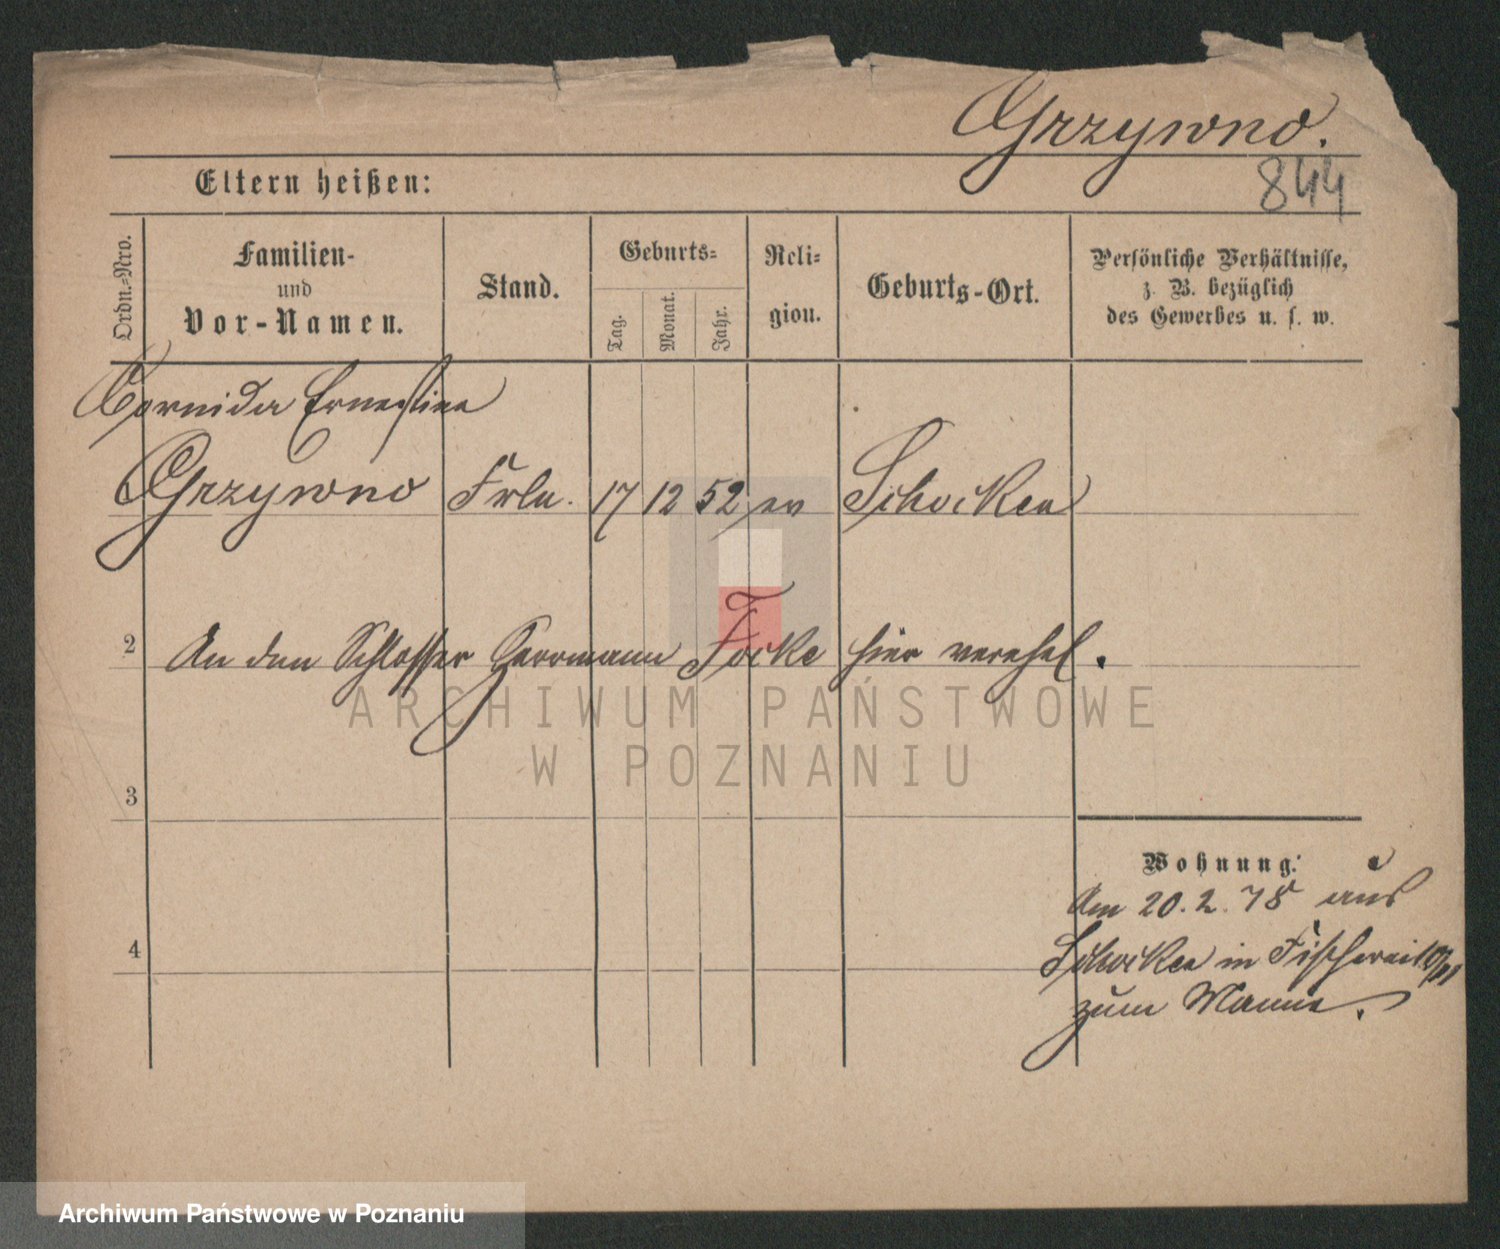 Grzywno.
844
Eltern heißen:
Ordn.-Nro.
Familien-
und
Vor-Namen.
Stand.
Geburts-
Tag.
Monat.
Jahr.
Reli-
gion.
Geburts-Ort.
Persönliche Verhältnisse,
z. B. bezüglich
des Gewerbes u. s. w.
Ernestine
Grzywno Frln. 17 12 52 ev Schocken
2 An den Schlosser Herrmann Focke hier verehel.
3
Wohnung:
Am 20. 2. 78 aus
4
Schocken in Fischerei
zum Manne.
ARCHIWUM PAŃSTWOWE
W POZNANIU
Archiwum Państwowe w Poznaniu